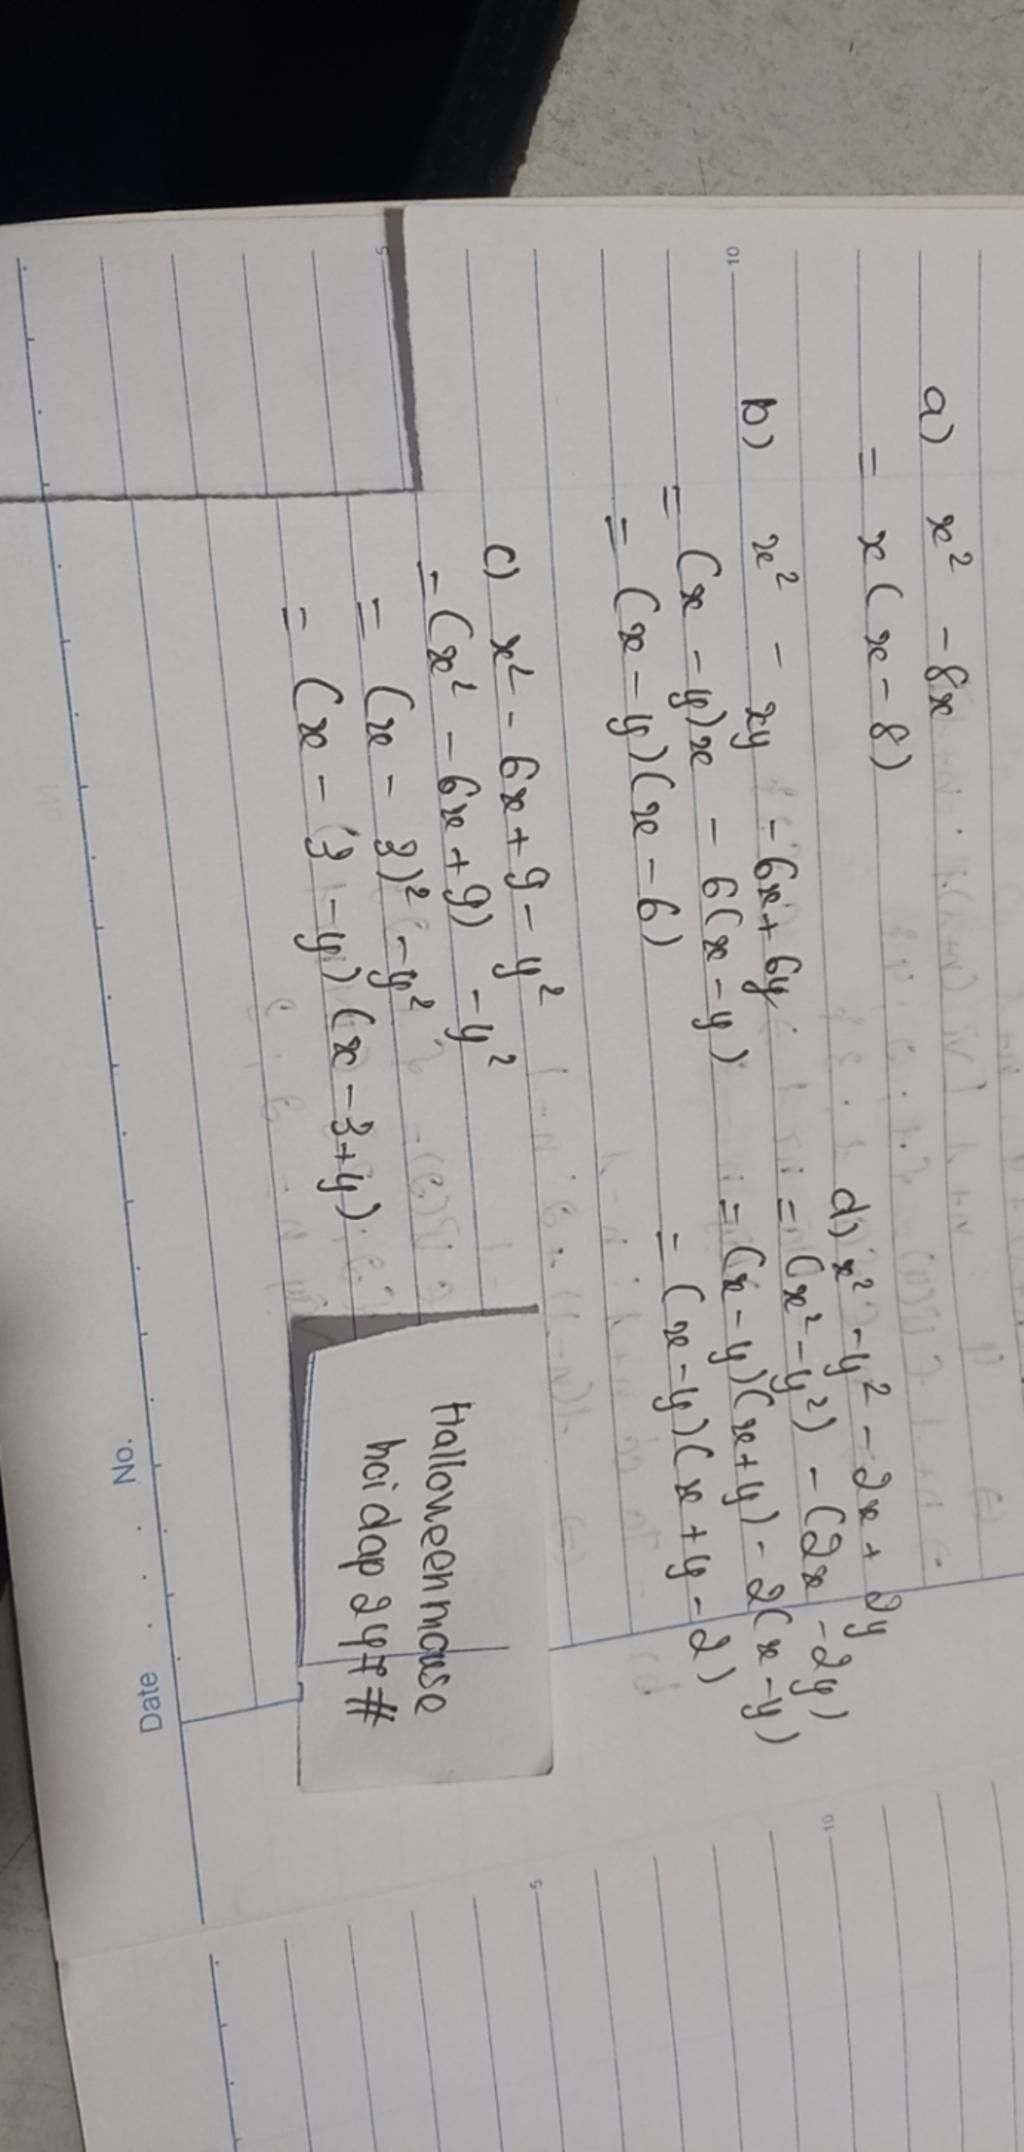 a) x² - 8x
= x(x - 8)
b) x² - xy - 6x + 6y
= (x - y)x - 6(x - y)
= (x - y)(x - 6)
c) x² - 6x + 9 - y²
= (x² - 6x + 9) - y²
= (x - 3)² - y²
= (x - 3 - y)(x - 3 + y)
d) x² - y² - 2x + 2y
= (x² - y²) - (2x - 2y)
= (x - y)(x + y) - 2(x - y)
= (x - y)(x + y - 2)
Halloweenmouse
hoidap247 #
No.
Date
5
10
5
10